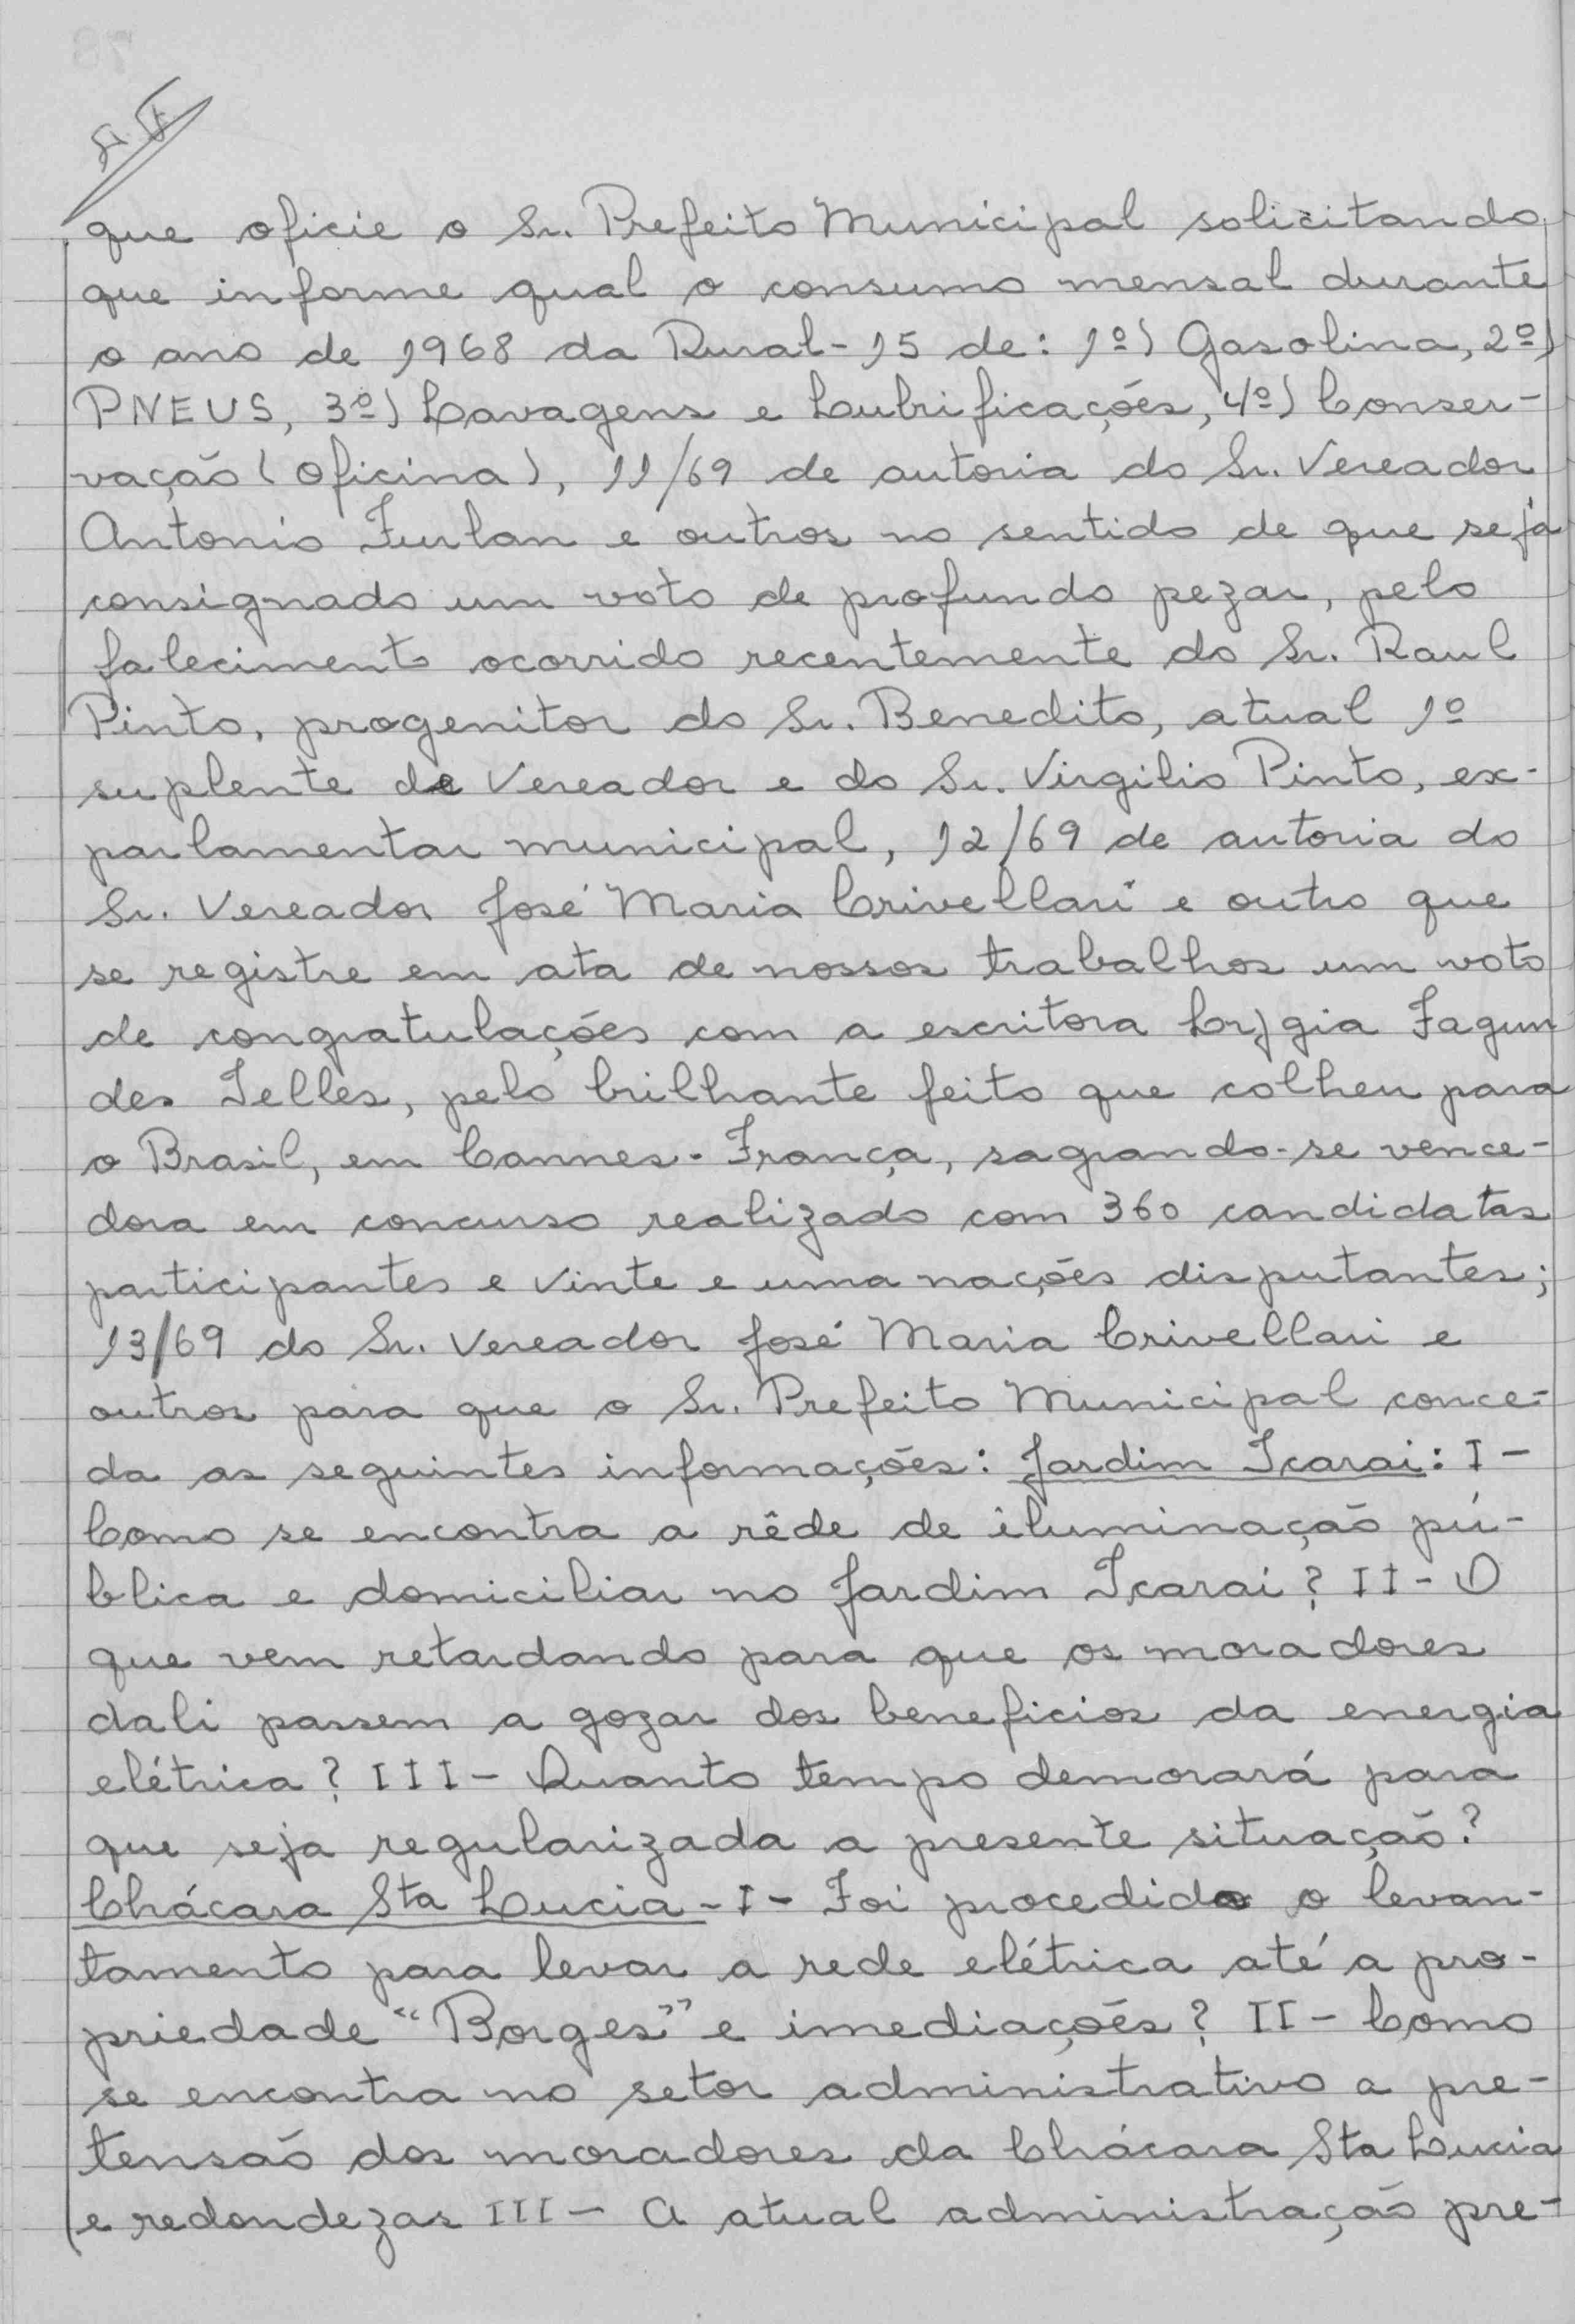 que oficie o Sr. Prefeito Municipal solicitando
que informe qual o consumo mensal durante
o ano de 1968 da Rural-15 de: 1º) Gasolina, 2º)
PNEUS, 3º) Lavagens e Lubrificações, 4º) Conser-
vação (oficina), 11/69 de autoria do Sr. Vereador
Antonio Furlan e outros no sentido de que seja
consignado um voto de profundo pezar, pelo
falecimento ocorrido recentemente do Sr. Raul
Pinto, progenitor do Sr. Benedito, atual 1º
suplente de Vereador e do Sr. Virgilio Pinto, ex-
parlamentar municipal, 12/69 de autoria do
Sr. Vereador José Maria Crivellari e outro que
se registre em ata de nossos trabalhos um voto
de congratulações com a escritora Lygia Fagun
des Telles, pelo brilhante feito que colheu para
o Brasil, em Cannes - França, sagrando-se vence-
dora em concurso realizado com 360 candidatas
participantes e vinte e uma nações disputantes;
13/69 do Sr. Vereador José Maria Crivellari e
outros para que o Sr. Prefeito Municipal conce-
da as seguintes informações: Jardim Icarai: I -
Como se encontra a rêde de iluminação pú-
blica e domiciliar no Jardim Icarai? II - O
que vem retardando para que os moradores
dali passem a gozar dos beneficios da energia
elétrica? III - Quanto tempo demorará para
que seja regularizada a presente situação?
Chácara Sta Lucia - I - Foi procedido o levan-
tamento para levar a rede elétrica até a pro-
priedade "Borges" e imediações? II - Como
se encontra no setor administrativo a pre-
tensão dos moradores da Chácara Sta Lucia
e redondezas III - A atual administração pre-